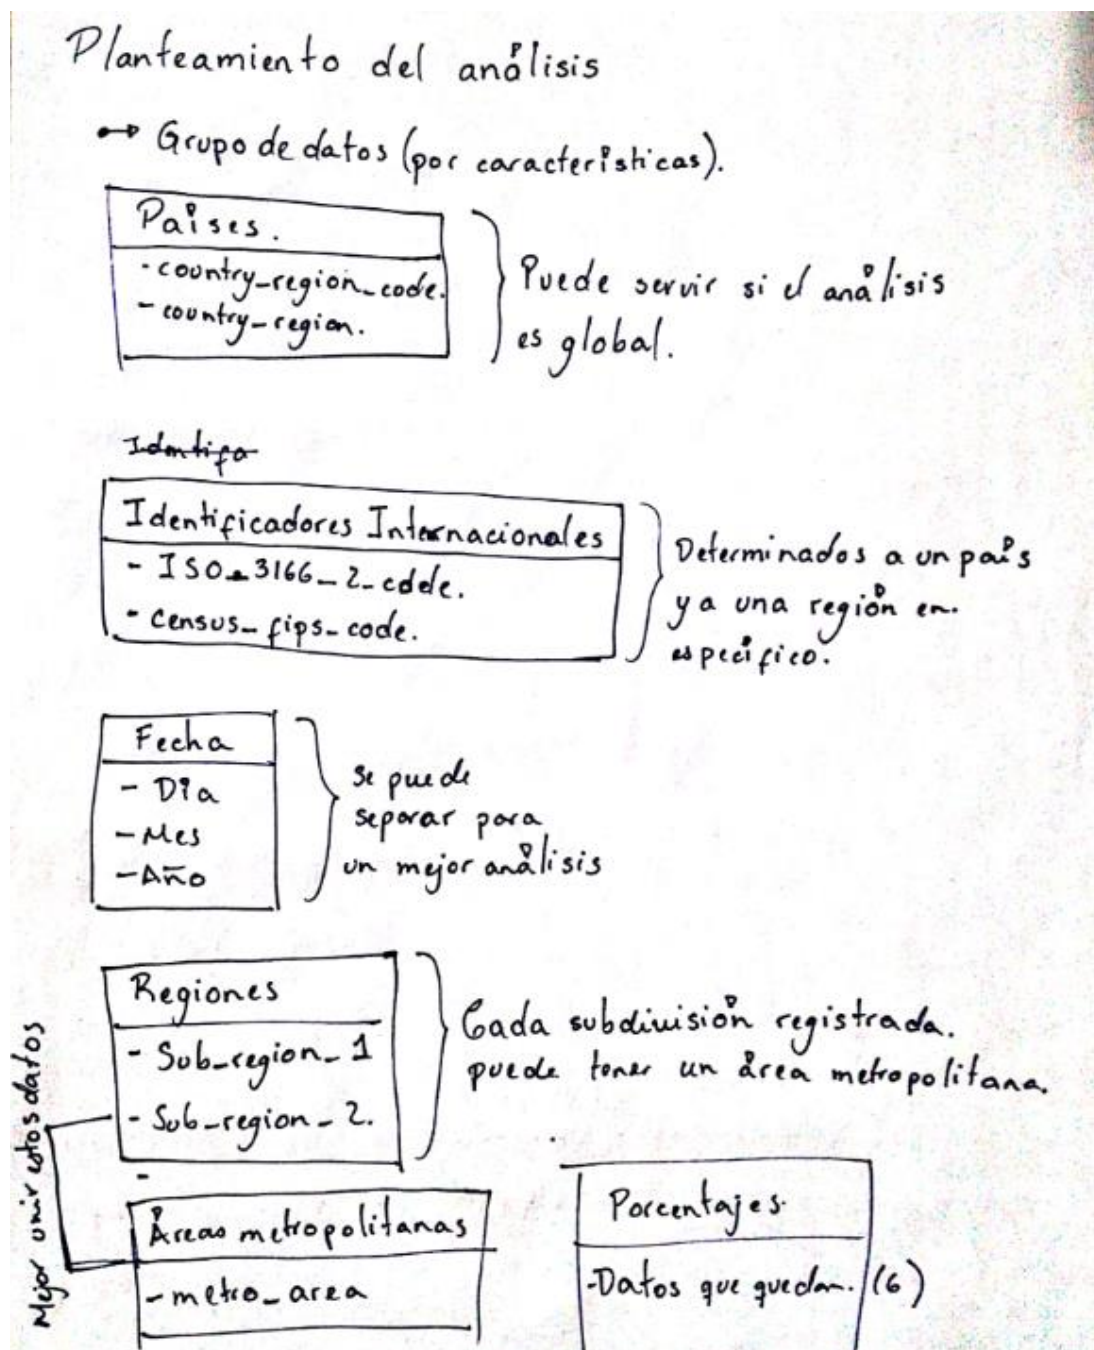 Planteamiento del análisis
Grupo de datos (por características).
Países.
- country_region_code.
- country_region.
Puede servir si el análisis
es global.
Idntifa
Identificadores Internacionales
- ISO_3166_2_code.
- census_fips_code.
Determinados a un país
y a una región en
específico.
Fecha
- Día
- Mes
- Año
Se puede
separar para
un mejor análisis
Regiones
- Sub_region_1
- Sub_region_2.
Cada subdivisión registrada.
puede tener un área metropolitana.
Mejor unir estos datos
Áreas metropolitanas
- metro_area
Porcentajes.
- Datos que quedan. (6)